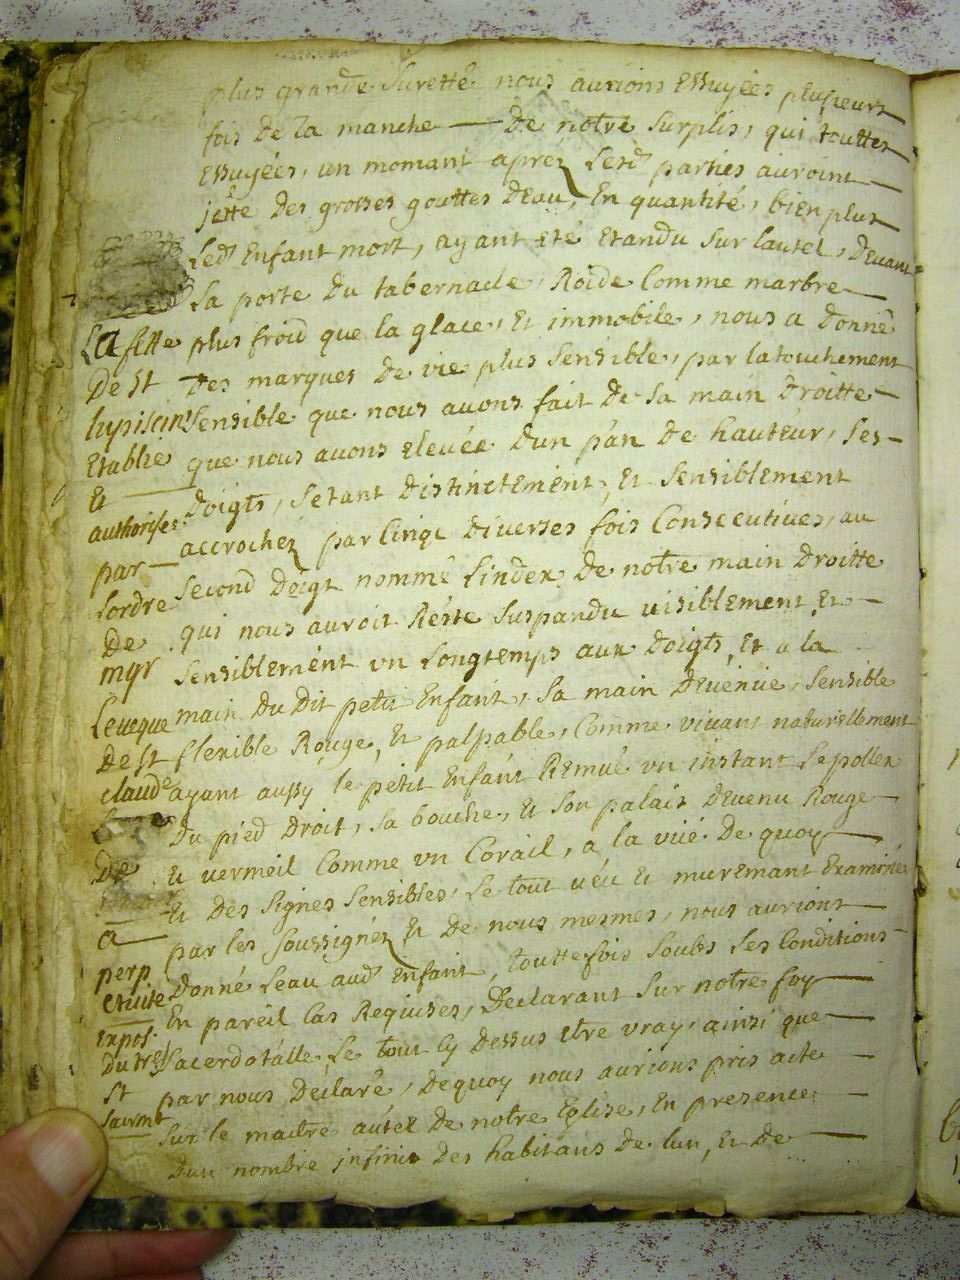 plus grande surette nous aurions Essuyées plusieurs
fois de la manche — de notre surplis, qui touttes
Essuyées, un momant aprez Lesd. parties auroint
jette des grosses gouttes dEau, En quantité, bien plus
Led. Enfant mort, ayant eté etandu sur lautel, devant
La porte du tabernacle, Roide Comme marbre
plus froid que la glace, Et immobile, nous a donné
des marques de vie plus sensible, par latouchement
sensible que nous avons fait de sa main droitte
que nous avons elevée dun pan de hauteur, ses
doigts, setant distinctement, Et sensiblement
accrochez par Cinqt diverses fois Consecutives, au
second doigt nommé Lindex de notre main droitte
qui nous auroit Resté suspandu visiblement Et
sensiblement un Longtemps aux doigts, Et a la
main du dit petit Enfant, sa main devenue, sensible
flexible Rouge, Et palpable, Comme vivant naturellement
ayant aussy le petit Enfant Remué un instant Lepollex
du pied droit, sa bouche, Et son palais devenu Rouge
Et vermeil Comme un Corail, a la vüe de quoy
Et des signes sensibles, Le tout veu Et murement Examinée
par les soussignéz Et de nous mesmes, nous aurions
donné Leau aud. Enfant, touttefois soubs les Conditions
En pareil Cas Requises, declarant sur notre foy
sacerdotalle, Le tout Cy dessus etre vray, ainsi que
par nous declaré, dequoy nous aurions pris acte
sur le maitre autel de notre Eglise, En presence
dun nombre infinit des habitans de lun, Et de
La fette
de st
lupiscin
Etablie
Et
authorisée
par
Lordre
De
mgr
Leveque
de st
claude
De
a
perp
etuite
Expos.
du tres
st
sacrmt